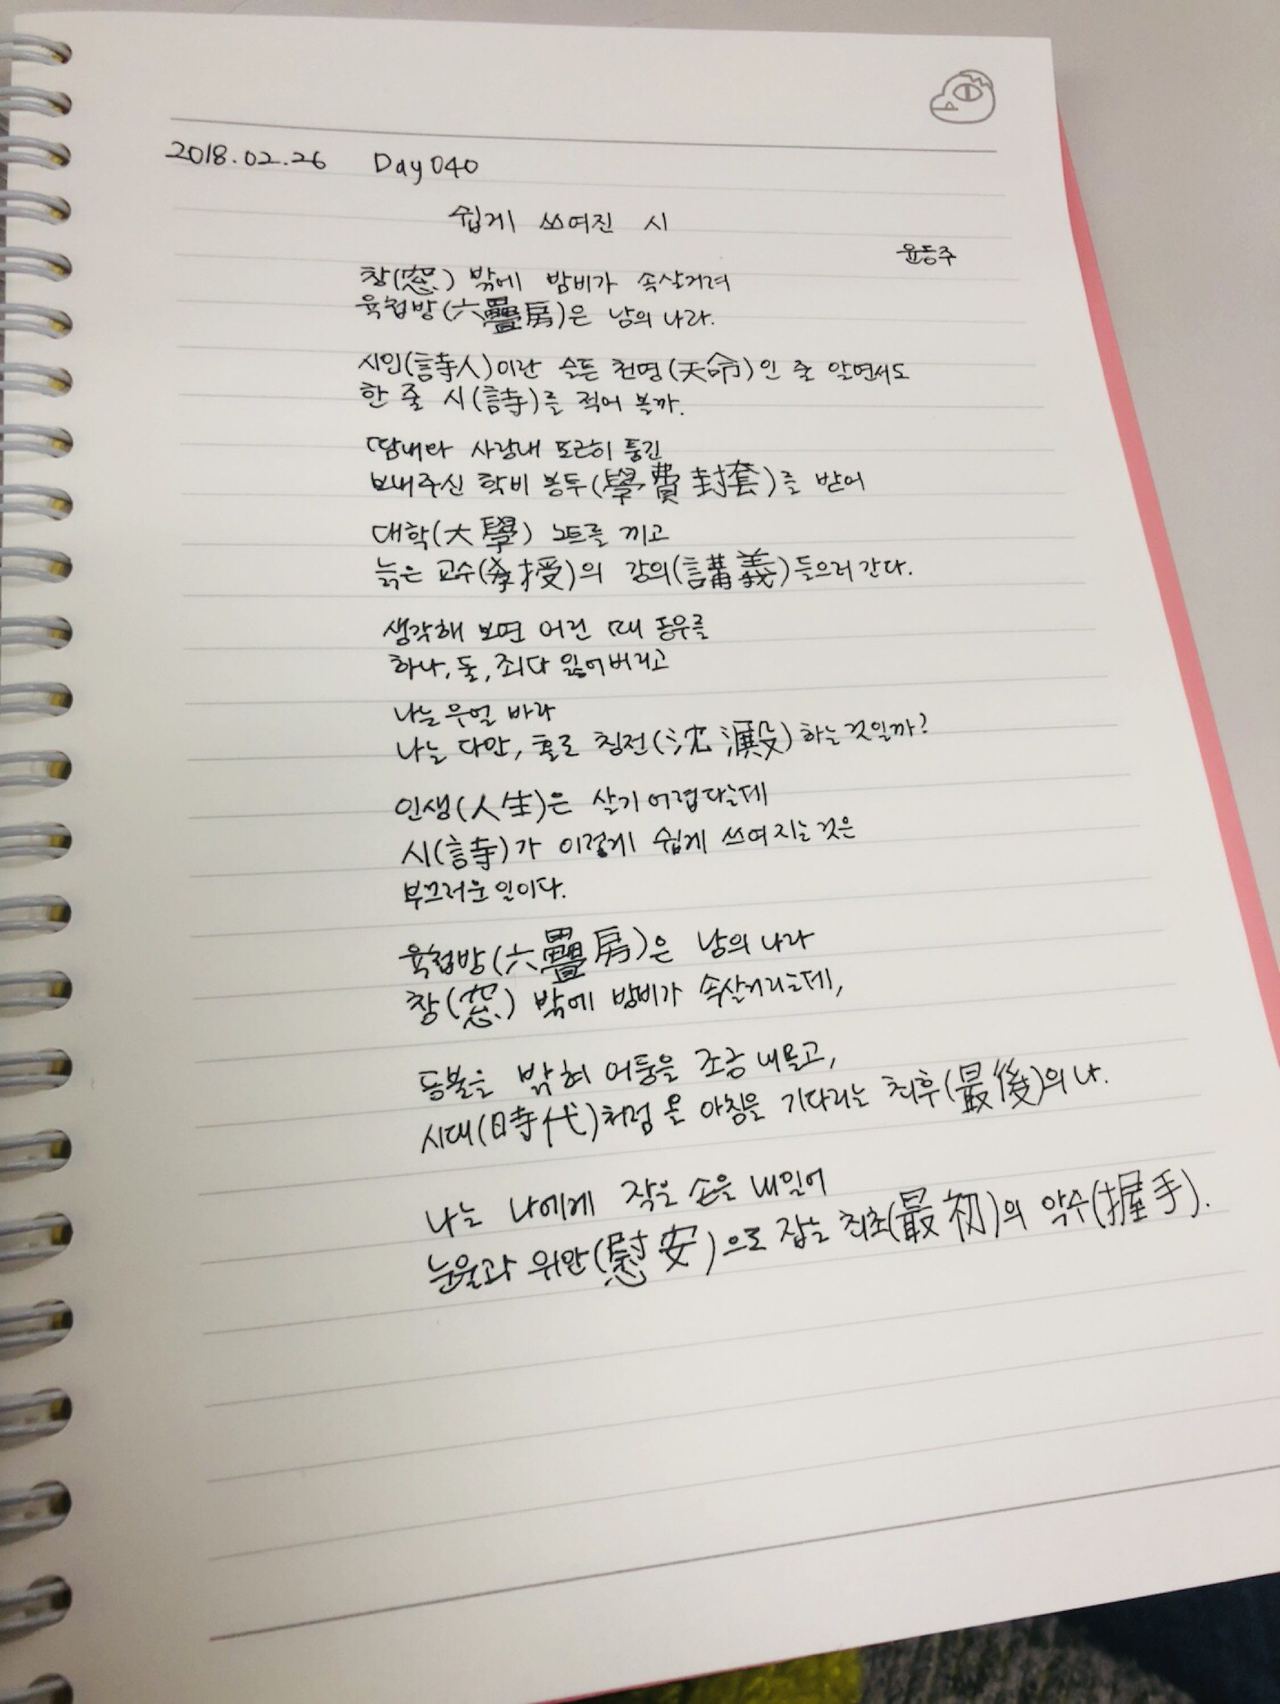 2018.02.26 Day 040
쉽게 쓰여진 시
윤동주
창(窓) 밖에 밤비가 속살거려
육첩방(六疊房)은 남의 나라.
시인(詩人)이란 슬픈 천명(天命)인 줄 알면서도
한 줄 시(詩)를 적어 볼까.
땀내와 사랑내 포근히 품긴
보내주신 학비 봉투(學費封套)를 받어
대학(大學) 노트를 끼고
늙은 교수(敎授)의 강의(講義) 들으러 간다.
생각해 보면 어린 때 동무를
하나, 둘, 죄다 잃어버리고
나는 무얼 바라
나는 다만, 홀로 침전(沈澱)하는 것일까?
인생(人生)은 살기 어렵다는데
시(詩)가 이렇게 쉽게 쓰여지는 것은
부끄러운 일이다.
육첩방(六疊房)은 남의 나라
창(窓) 밖에 밤비가 속살거리는데,
등불을 밝혀 어둠을 조금 내몰고,
시대(時代)처럼 올 아침을 기다리는 최후(最後)의 나.
나는 나에게 작은 손을 내밀어
눈물과 위안(慰安)으로 잡는 최초(最初)의 악수(握手).